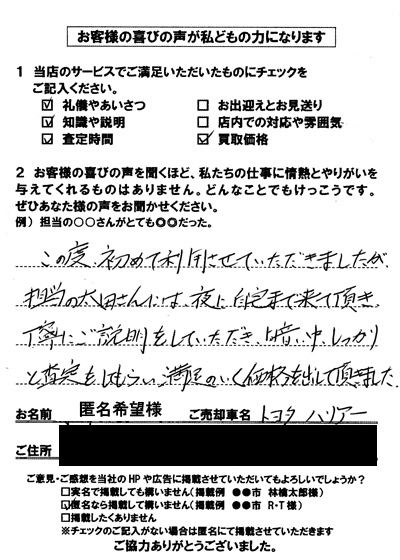 お客様の喜びの声が私どもの力になります
1 当店のサービスでご満足いただいたものにチェックを
ご記入ください。
☑ 礼儀やあいさつ □ お出迎えとお見送り
☑ 知識や説明 □ 店内での対応や雰囲気
☑ 査定時間 ☑ 買取価格
2 お客様の喜びの声を聞くほど、私たちの仕事に情熱とやりがいを
与えてくれるものはありません。どんなことでもけっこうです。
ぜひあなた様の声をお聞かせください。
例）担当の○○さんがとても◎◎だった。
この度、初めて利用させていただきましたが、
担当の太田さんには、夜に自宅まで来て頂き、
丁寧にご説明をしていただき、暗い中、しっかり
と査定をしてもらい、満足のいく価格を出して頂きました
お名前 匿名希望様 ご売却車名 トヨタ ハリアー
ご住所
ご意見・ご感想を当社のHPや広告に掲載させていただいてもよろしいでしょうか？
□実名で掲載しても構いません（掲載例 ●●市 林檎太郎様）
☑匿名なら掲載して構いません（掲載例 ●●市 R・T様）
□掲載したくありません
※チェックのご記入がない場合は匿名にて掲載させていただきます
ご協力ありがとうございました。